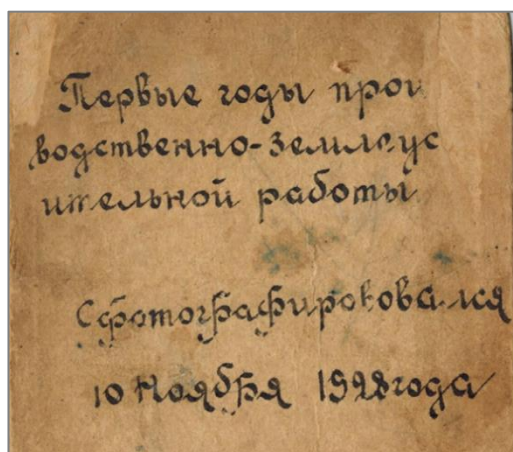 Первые годы прои
водственно-землеус
ительной работы
Сфотографироковался
10 Ноября 1928 года